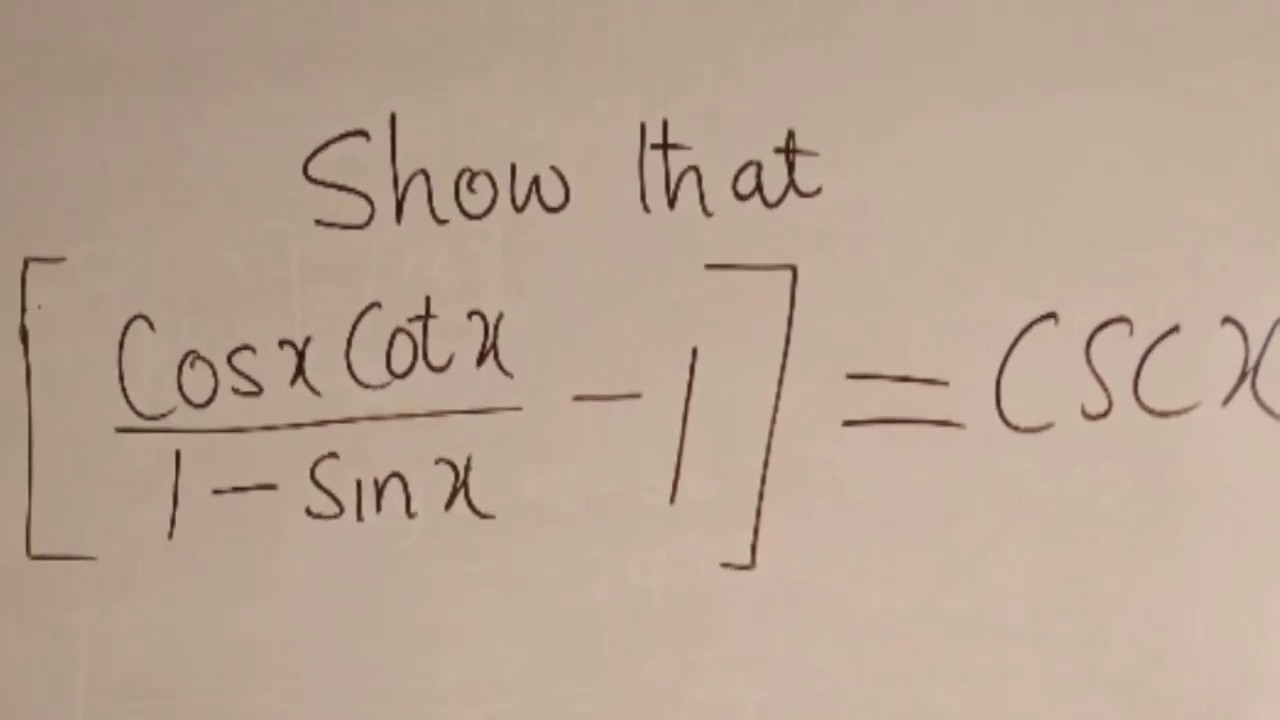 Show that
[ Cosx Cotx / 1 - Sinx - 1 ] = CSCX